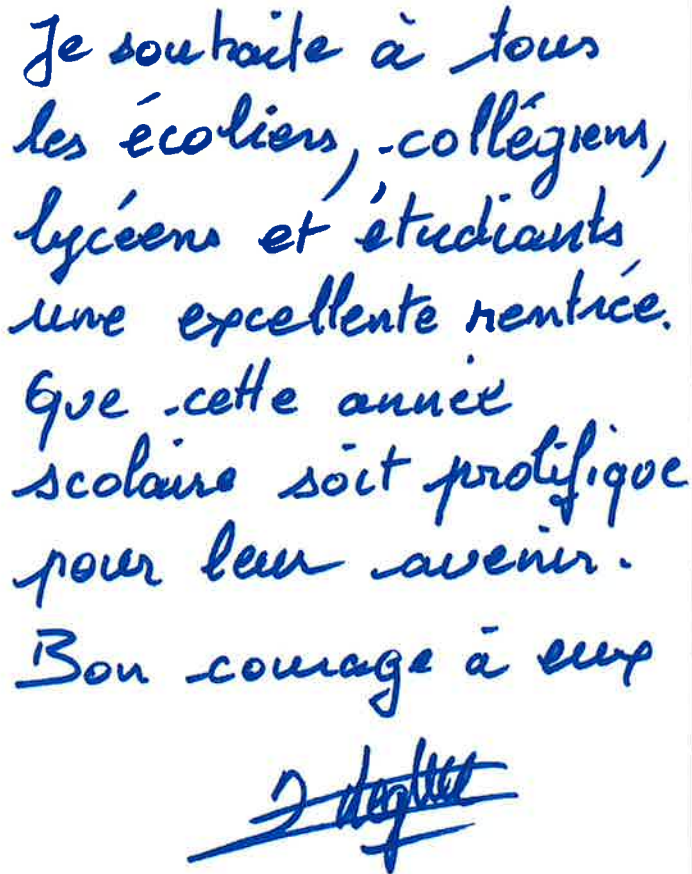 Je souhaite à tous
les écoliers, collégiens,
lycéens et étudiants
une excellente rentrée.
Que cette année
scolaire soit prolifique
pour leur avenir.
Bon courage à eux